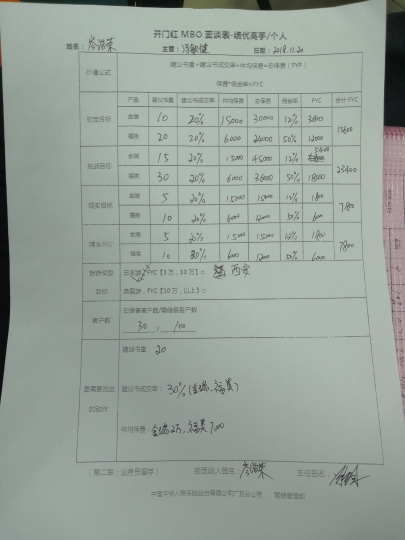 开门红 MBO 面谈表-绩优高手/个人
姓名： 主管：冯敏健 日期：2018.11.20
价值公式 建议书量*建议书成交率*件均保费=总保费（FYP）
保费*佣金率=FYC
产品 建议书量 建议书成交率 件均保费 总保费 佣金率 FYC 合计FYC
目标 金瑞 10 20% 15000 30000 12% 3600 15600
福类 20 20% 6000 24000 50% 12000
挑战目标 金瑞 15 20% 15000 45000 12% 5400 23400
福类 30 20% 6000 36000 50% 18000
目标 金瑞 5 20% 15000 15000 12% 1800 7800
福类 10 20% 6000 12000 50% 6000
金瑞 5 20% 15000 15000 12% 1800 7800
福类 10 20% 6000 12000 50% 6000
旅游奖励 日本游：FYC【3万，10万】□ 西安
目标 英国游：FYC【10万，以上】□
客户数 已储备客户数/需储备客户数
30 / 100
建议书量：20
最需要改进 建议书成交率：30%（金瑞、福类）
的动作
件均保费：金瑞2万，福类7000
（第二联：业务员留存） 被面谈人签名： 主任签名：
中国平安人寿保险股份有限公司广东分公司 营销管理部